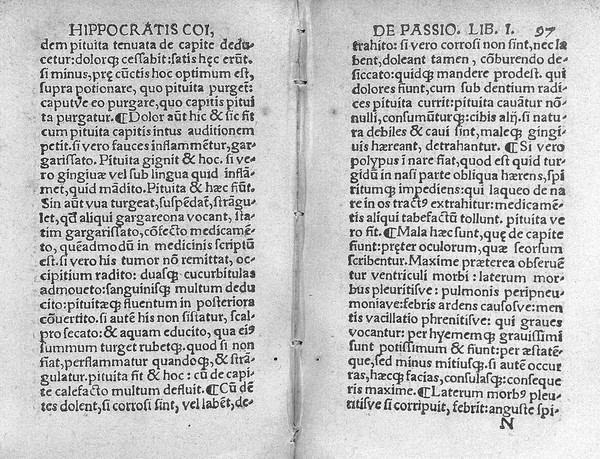 HIPPOCRATIS COI,
dem pituita tenuata de capite dedu-
cetur: dolorq; cessabit: satis hęc erũt.
si minus, prę cũctis hoc optimum est,
supra potionare, quo pituita purget:
caputve eo purgare, quo capitis pitui
ta purgatur. ¶Dolor aũt hic & sic fit
cum pituita capitis intus auditionem
petit. si vero fauces inflammẽtur, gar-
garissato. Pituita gignit & hoc. si ve-
ro gingiuæ vel sub lingua quid inflã-
met, quid mãdito. Pituita & hæc fiũt.
Sin aũt vua turgeat, suspẽdat, strãgu-
let, qđ aliqui gargareona vocant, sta-
tim gargarissato, cõfecto medicamẽ-
to, quẽadmodũ in medicinis scriptũ
est. si vero his tumor nõ remittat, oc-
cipitium radito: duasq; cucurbitulas
admoueto: sanguinisq; multum dedu
cito: pituitæq; fluentum in posteriora
cõuertito. si autẽ his non sistatur, scal-
pro secato: & aquam educito, qua eiꝰ
summum turget rubetq;. quod si non
fiat, perflammatur quandoq;, & strã-
gulatur. pituita fit & hoc: cũ de capi-
te calefacto multum defluit. ¶Cũ dẽ
tes dolent, si corrosi sint, vel labẽt, de-
DE PASSIO. LIB. I. 97
trahito: si vero corrosi non sint, nec la
bent, doleant tamen, cõburendo de-
siccato: quidq; mandere prodest. qui
dolores fiunt, cum sub dentium radi-
ces pituita currit: pituita cauãtur nõ-
nulli, consumũturq;: cibis alij. si natu
ra debiles & caui sint, maleq; gingi-
uis hæreant, detrahantur. ¶Si vero
polypus ĩ nare fiat, quod est quid tur-
gidũ in nasi parte obliqua hærens, spi
ritumq; impediens: qui laqueo de na-
re in os tractꝰ extrahitur: medicamẽ-
tis aliqui tabefactũ tollunt. pituita ve
ro fit. ¶Mala hæc sunt, quę de capite
fiunt: pręter oculorum, quæ seorsum
scribentur. Maxime præterea obseruẽ
tur ventriculi morbi: laterum mor-
bus pleuritisve: pulmonis peripneu-
moniave: febris ardens causosve: men
tis vacillatio phrenitisve: qui graues
vocantur: per hyememq; grauissimi
sunt potissimum & fiunt: per æstatẽ-
que, sed minus mitiusq;. si autẽ occur
ras, hæcq; facias, consulasq;: conseque
ris maxime. ¶Laterum morbꝰ pleu-
titisve si corripuit, febrit: anguste spi-
N